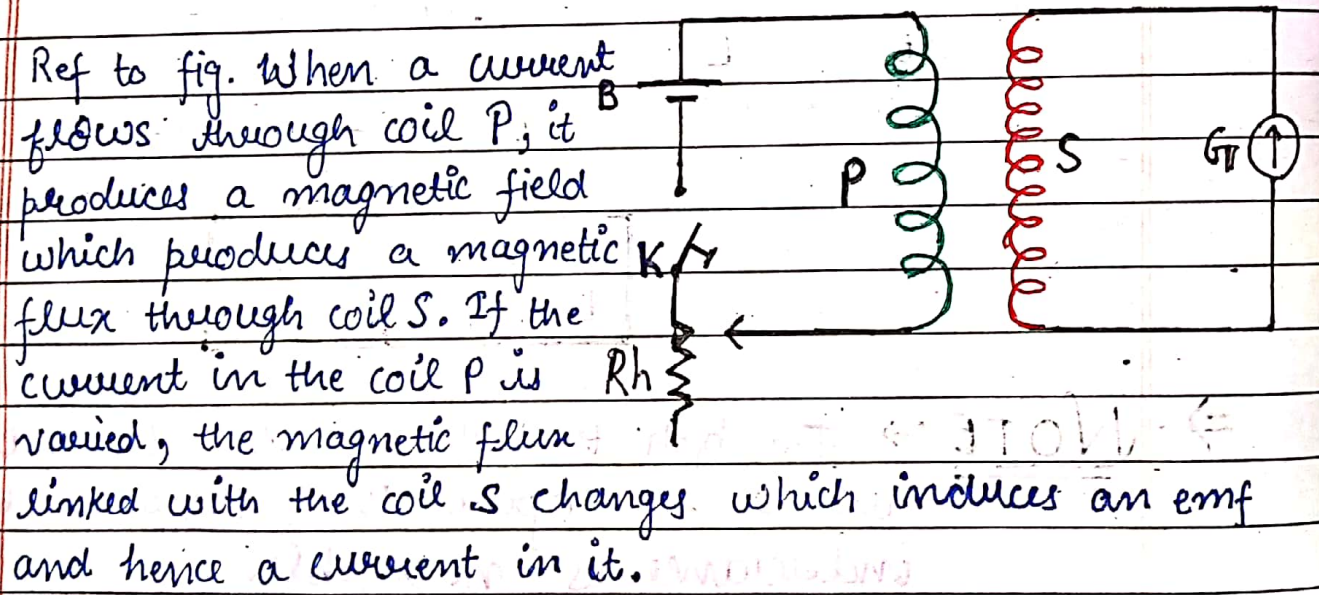 Ref to fig. When a current
flows through coil P, it
produces a magnetic field
which produces a magnetic
flux through coil S. If the
current in the coil P is
varied, the magnetic flux
linked with the coil S changes which induces an emf
and hence a current in it.
B
P
S
G
K
Rh